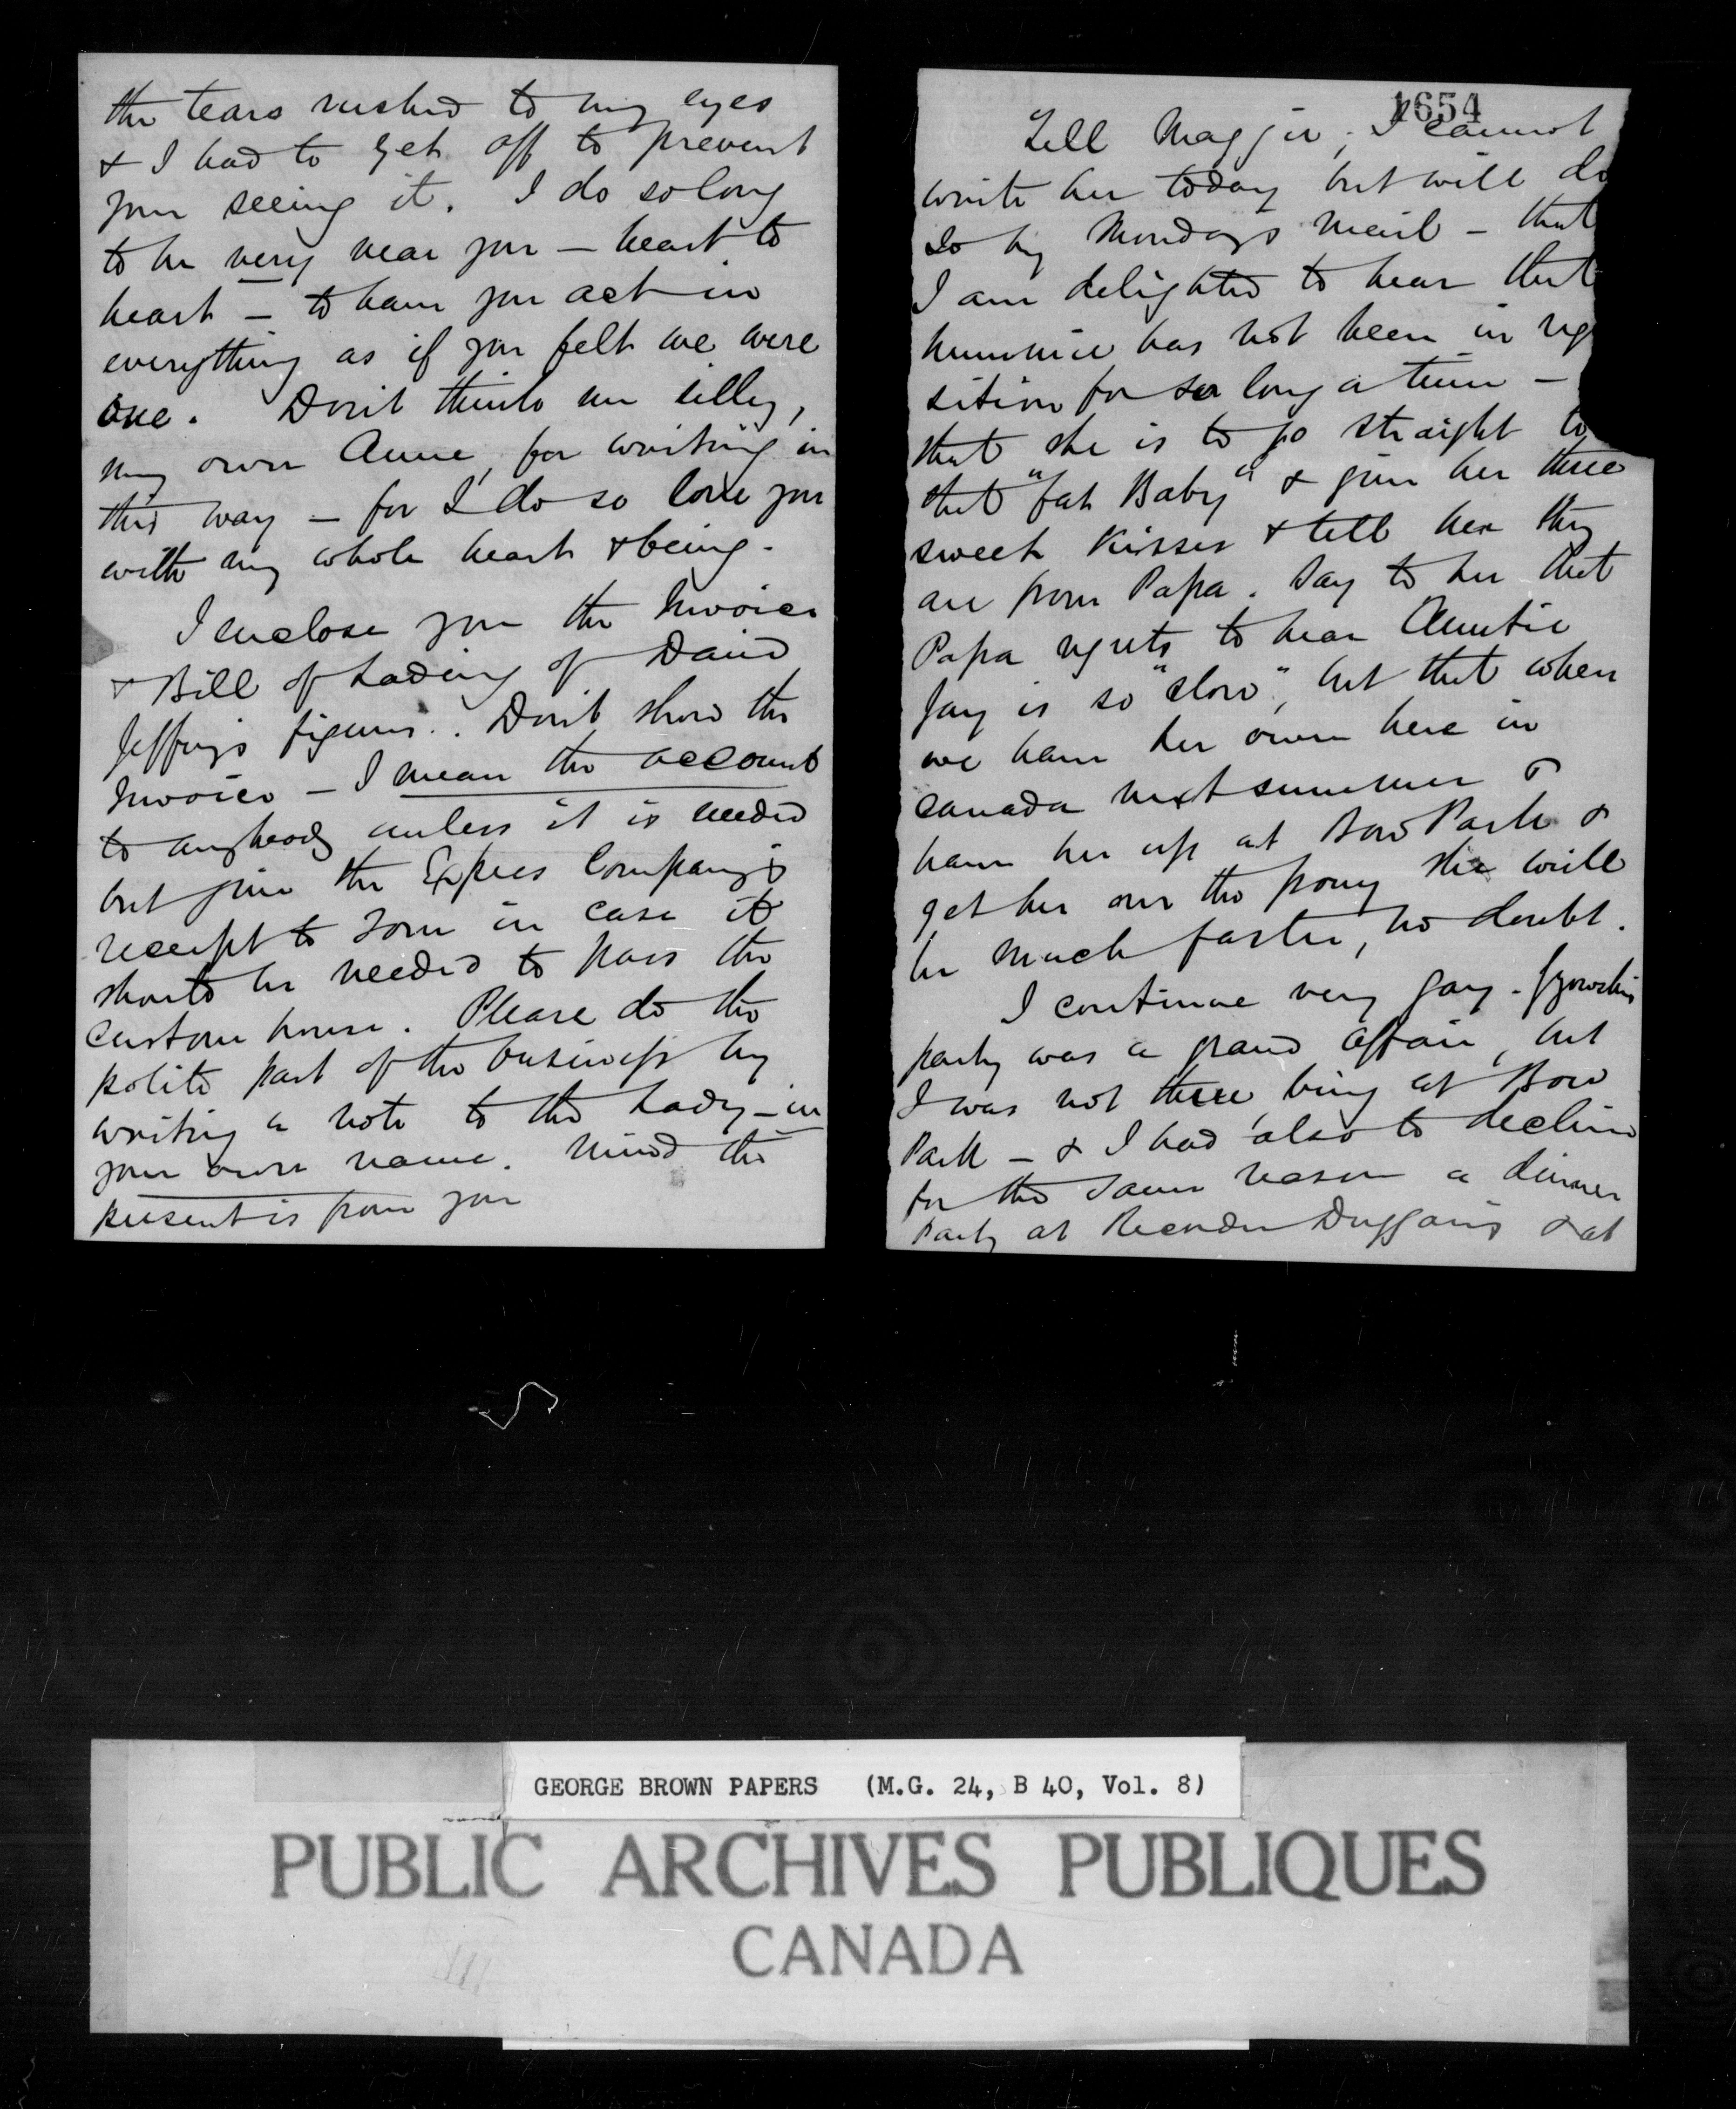 the tears rushed to my eyes
& I had to get off to prevent
your seeing it. I do so long
to be very near you — heart to
heart — to have you act in
everything as if you felt we were
one. Don't think me silly,
my own Anne, for writing in
this way — for I do so love you
with my whole heart & being.
I enclose you the Invoice
& Bill of Lading of David
Jeffrey's figures. Don't show the
Invoice — I mean the account
to anybody unless it is needed
but give the Express Company's
receipt to Tom in case it
should be needed to pass the
custom house. Please do the
polite part of the business by
writing a note to the Lady — in
your own name. Mind the
present is from you
1654
Tell Maggie, I cannot
write her today but will do
so by Mondays mail — that
I am delighted to hear that
has not been in
sition for so long a time —
that she is to go straight to
that "fat Baby" & give her three
sweet kisses & tell her they
are from Papa. Say to her that
Papa regrets to hear Auntie
Jay is so "slow", but that when
we have her over here in
Canada next summer &
have her up at Bow Park &
get her on the pony she will
be much faster, no doubt.
I continue very gay. Gzowskis
party was a grand affair, but
I was not there being at Bow
Park — & I had also to decline
for the same reason a dinner
party at Recorder Duggan's & at
GEORGE BROWN PAPERS (M.G. 24, B 40, Vol. 8)
PUBLIC ARCHIVES PUBLIQUES
CANADA